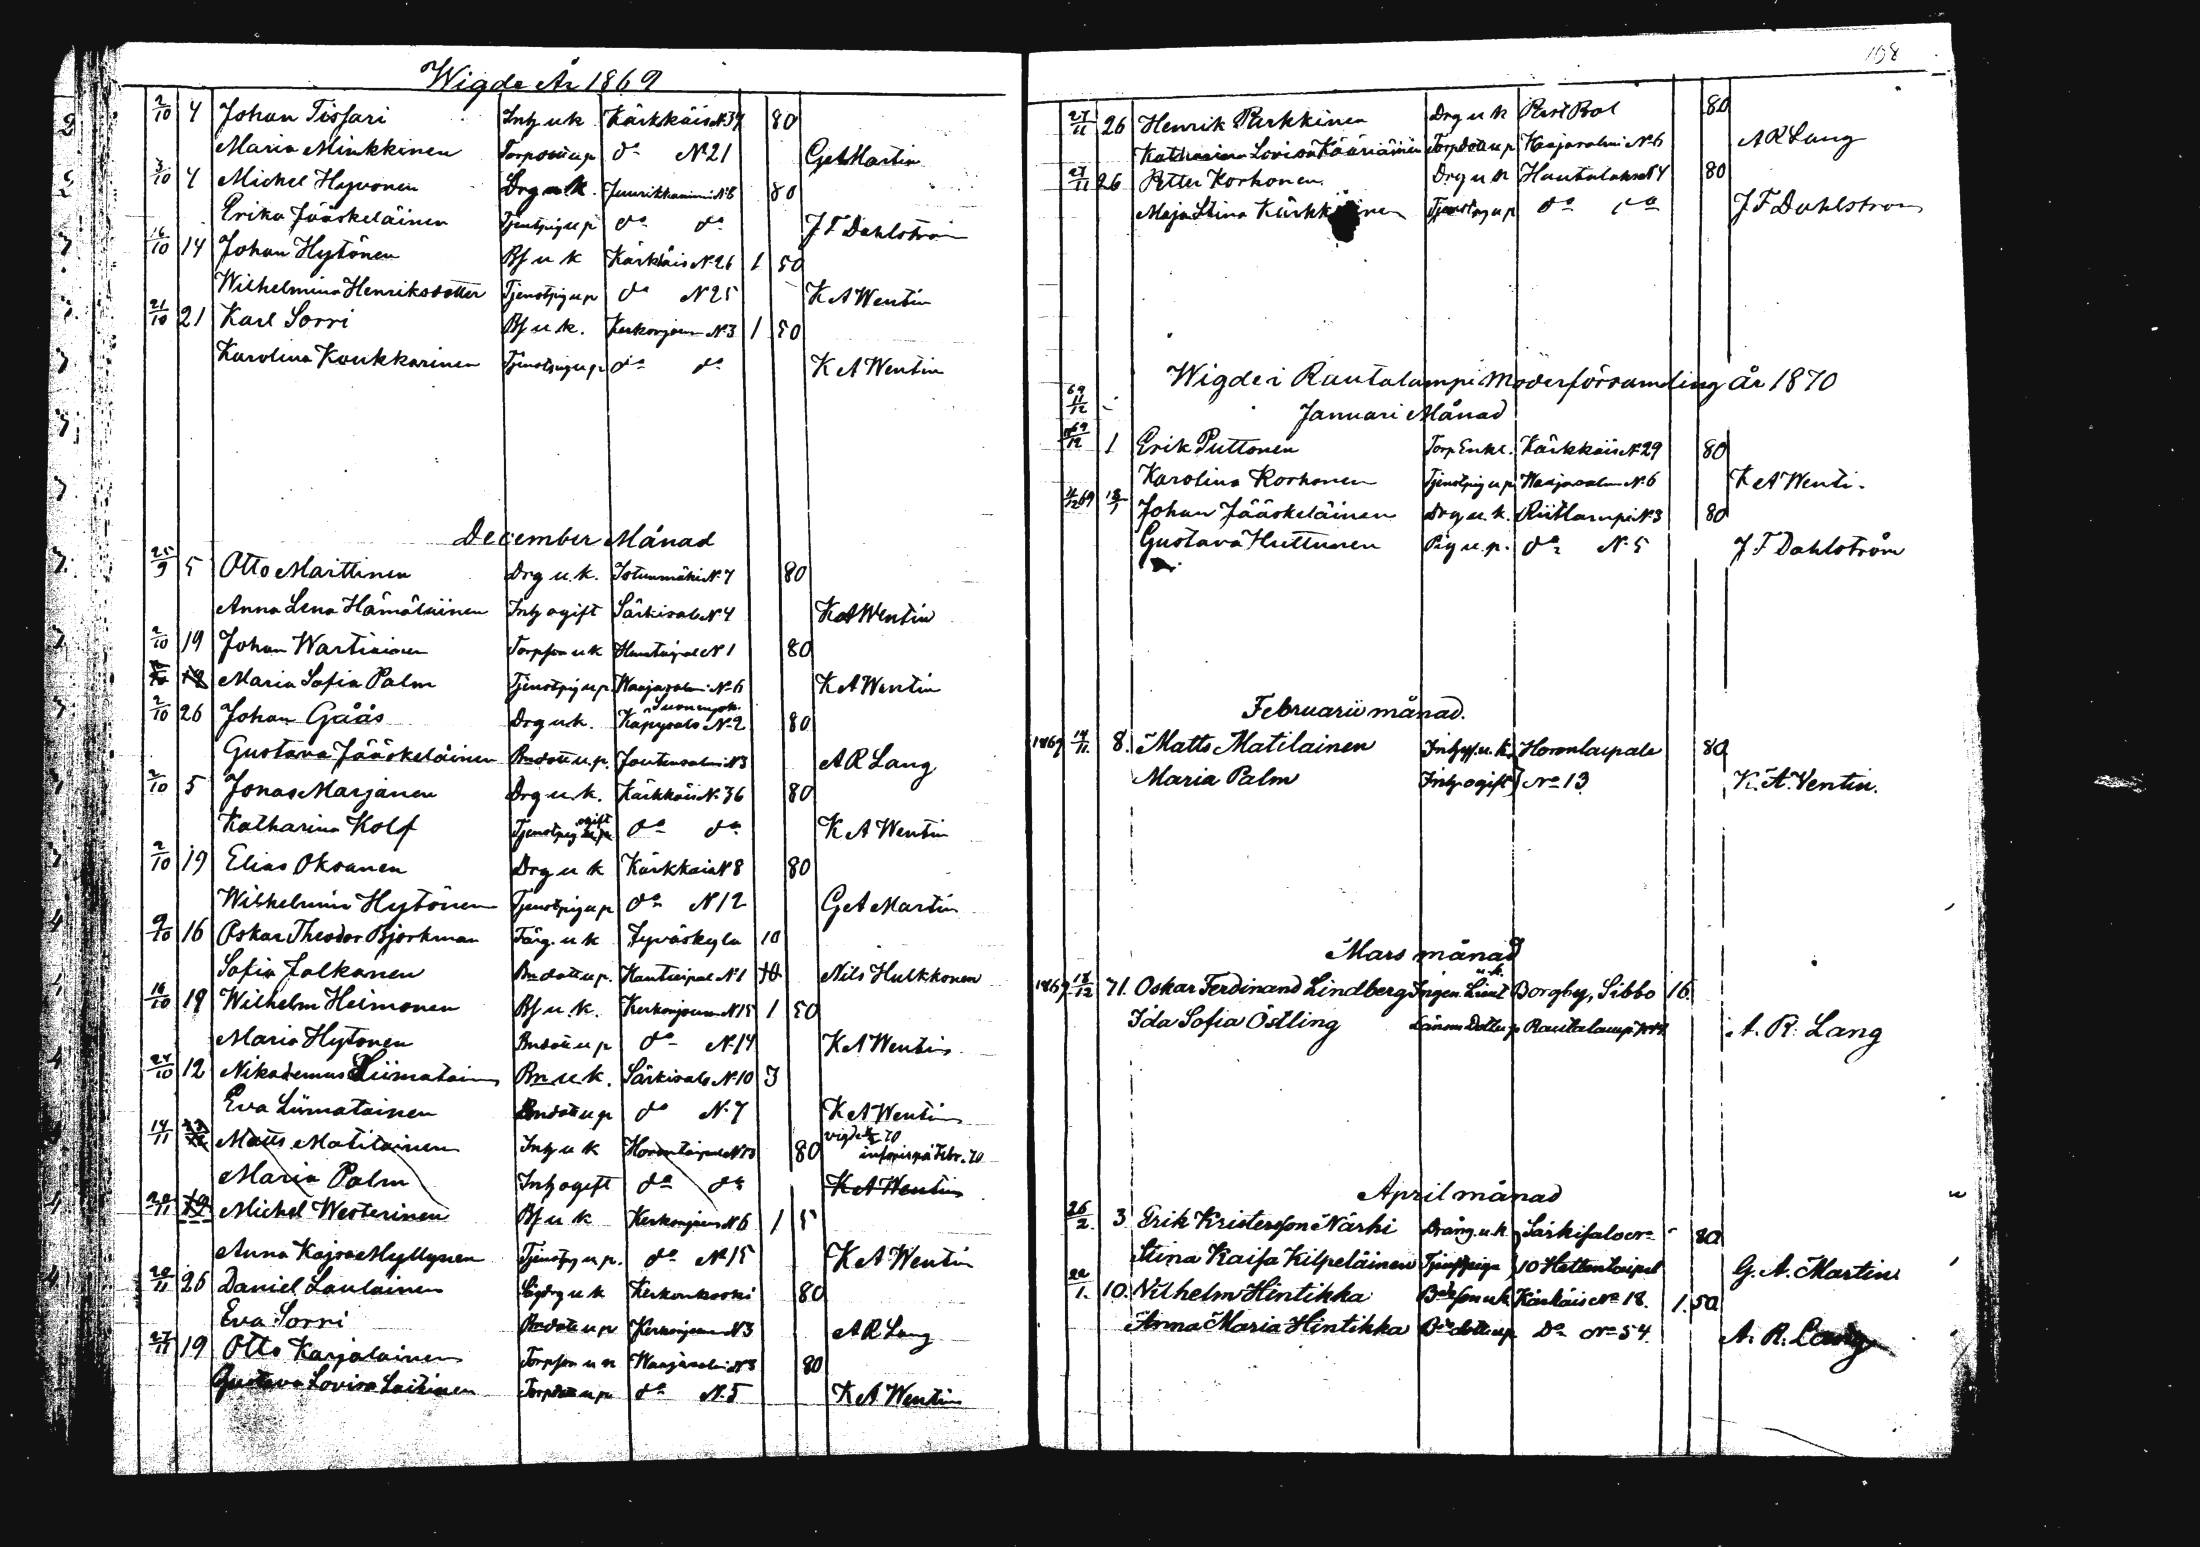 Wigde År 1869
2/10 4 Johan Tissari Inh u k Kärkkäis N 34 80
Maria Minkkinen Torpdott u p do N 21 G A Martin
3/10 4 Michel Hyvonen Drg u k. N 8 80
Erika Jääskeläinen Tjenstpig u p do do J F Dahlström
16/10 14 Johan Hytönen Bs u k Kärkkäis N 26 1 50
Wilhelmina Henriksdotter Tjenstpig u p do N 25 K A Wentin
21/10 21 Karl Sorri Bs u k. Kerkonjoen N 3 1 50
Karolina Koukkarinen Tjenstpig u p do do K A Wentin
December Månad
25/9 5 Otto Marttinen Drg u. k. Istunmäki N 7 80
Anna Lena Hämäläinen Inh ogift Särkisalo N 4 K A Wentin
2/10 19 Johan Wartiainen Torpson u k N 1 80
Maria Sofia Palm Tjenstpig u p. Waajasalmi N 6 K A Wentin
2/10 26 Johan Gåås Drg u k. Käpysalo N 2 80
Gustava Jääskeläinen Bndott u. p. Joutensalmi N 3 A R Lang
2/10 5 Jonas Marjanen Drg u. k. Kärkkäis N 36 80
Katharina Kolf Tjenstpig ogift do do K A Wentin
2/10 19 Elias Oksanen Drg u k Kärkkäis N 8 80
Wilhelmina Hytönen Tjenstpig u p do N 12 G A Martin
9/10 16 Oskar Theodor Bjorkman Färg. u k Jyväskyla 10
Sofia Jalkanen Bndott u p. N 1 10 Nils Hulkkonen
16/10 19 Wilhelm Heimonen Bs u k. Kerkonjoen N 15 1 50
Maria Hytonen Bndott u p do N 14 K A Wentin
24/10 12 Nikodemus Liimatainen Bn u k. Särkisalo N 10 3
Eva Liimatainen Bndott u p do N 7 K A Wentin
14/11 Matts Matilainen Inh u k Honkataipale N 13 80 70
införes på Febr. 70
Maria Palm Inh ogift do do K A Wentin
20/11 19 Michel Westerinen Bs u k Kerkonjoen N 6 1 5
Anna Kajsa Myllynen Tjenstpig u p. do N 15 K A Wentin
20/11 26 Daniel Laulainen u k Kerkonkoski 80
Eva Sorri Bndott u p Kerkonjoen N 3 A R Lang
27/11 19 Otto Karjalainen Torpson u k Waajasalmi N 3 80
Gustava Lovisa Laitinen Torpdott u p do N. 5 K A Wentin
108
27/11 26 Henrik Parkkinen Drg u k 80
Katharina Lovisa Kääriäinen Torpdott u p Waajasalmi N 6 A R Lang
27/11 26 Petter Korhonen Drg u k Hautolaks N 4 80
Maja Stina Kärkkäinen Tjenstpig u p do do J F Dahlstrom
Wigde i Rautalampi Moderförsamling år 1870
Januari Månad
1 Erik Puttonen Torp Enkl. Kärkkäis N 29 80
Karolina Korhonen Tjenstpig u p Waajasalmi N. 6 K A Wenti.
Johan Jääskeläinen Drg u. k. Riitlampi N 3 80
Gustava Huttunen Pig u. p. do N. 5 J F Dahlström
Februarii månad.
1869 14/11 8. Matts Matilainen Inhys. u. k. Honkataipale 80
Maria Palm Inh. ogift No 13 K. A. Ventin.
Mars månad
1869 18/12 71. Oskar Ferdinand Lindberg Ingen. Lieut u. k. Borgby, Sibbo 16.
Ida Sofia Östling Länsm Dotter Rautalampi A. R. Lang
April månad
26/2. 3. Erik Kristersson Närhi Dräng. u. k. Särkisalo No 80
Stina Kaisa Kilpeläinen Tjenstpiga 10 Hettentaipal G. A. Martin
22/1. 10. Vilhelm Hintikka Bdeson u k. Kärkäis No 18. 1. 50
Anna Maria Hintikka Bdedott u p Do No 54. A. R. Lang